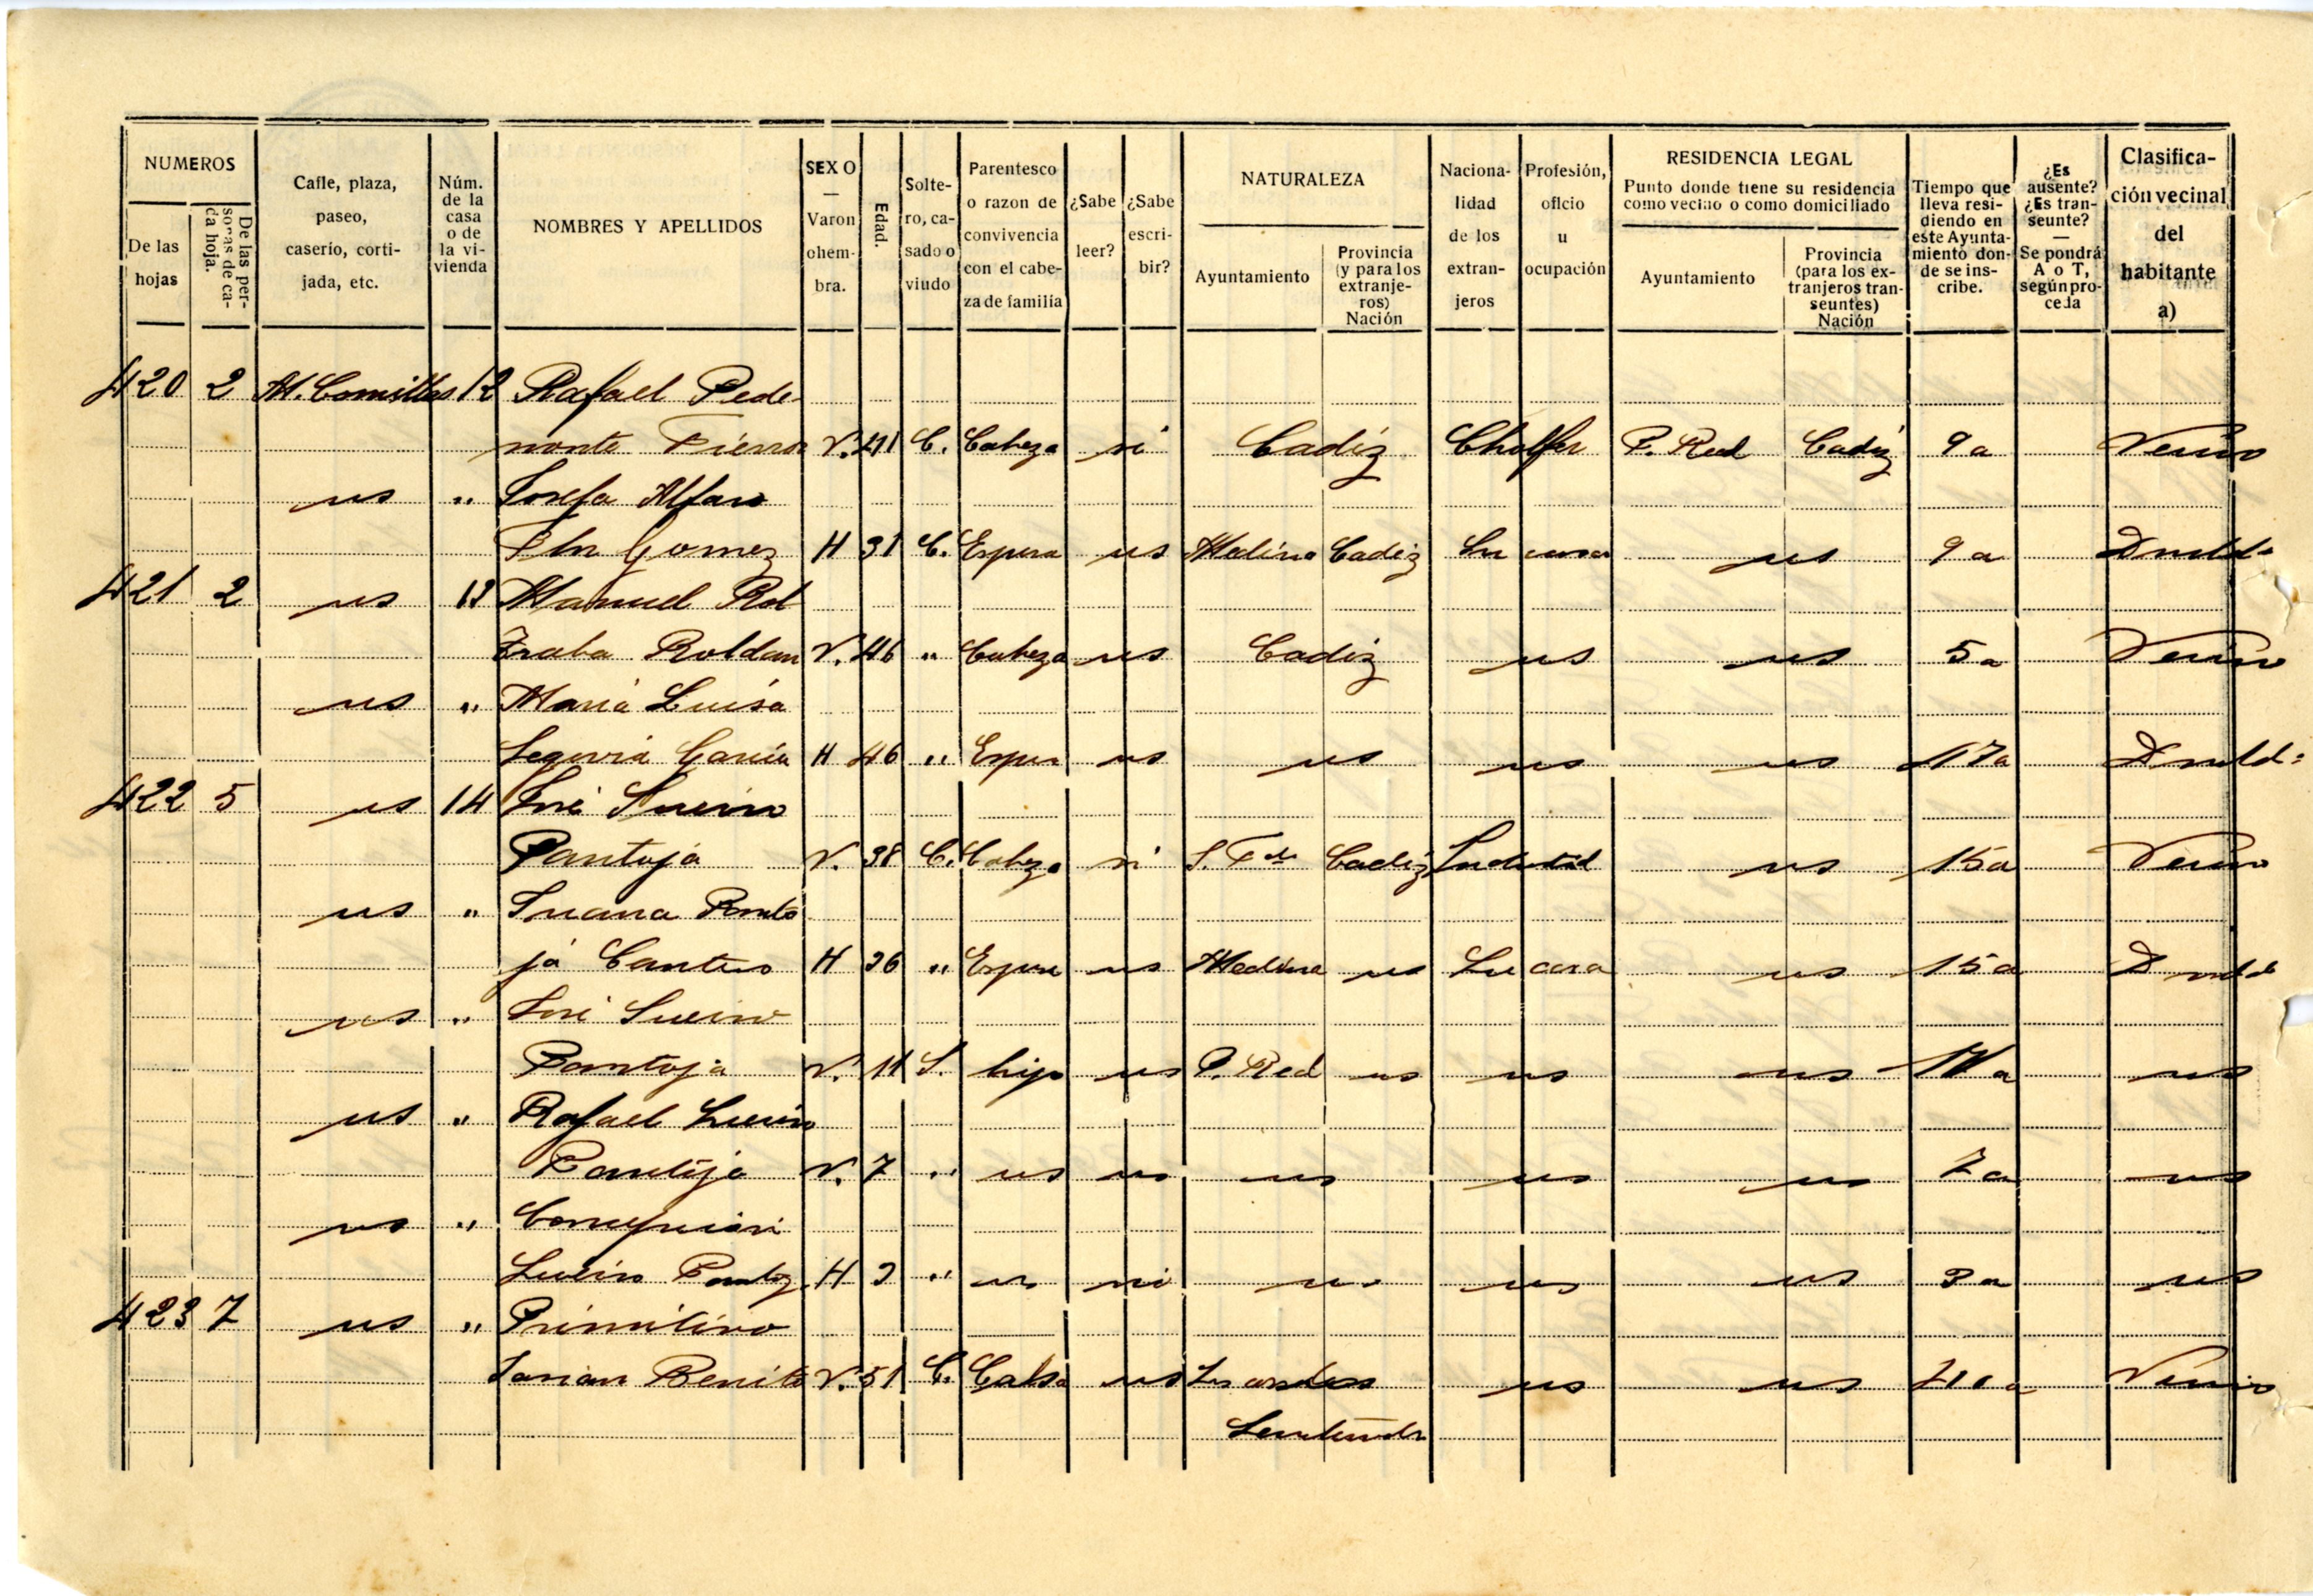 NUMEROS
De las hojas
De las personas de cada hoja.
Calle, plaza, paseo, caserío, cortijada, etc.
Núm. de la casa o de la vivienda
NOMBRES Y APELLIDOS
SEXO — Varon ohembra.
Edad.
Soltero, casado o viudo
Parentesco o razon de convivencia con el cabeza de familia
¿Sabe leer?
¿Sabe escribir?
NATURALEZA
Ayuntamiento
Provincia (y para los extranjeros) Nación
Nacionalidad de los extranjeros
Profesión, oficio u ocupación
RESIDENCIA LEGAL
Punto donde tiene su residencia como vecino o como domiciliado
Ayuntamiento
Provincia (para los extranjeros transeuntes) Nación
Tiempo que lleva residiendo en este Ayuntamiento donde se inscribe.
¿Es ausente? ¿Es transeunte? — Se pondrá A o T, según proceda
Clasificación vecinal del habitante a)
420 2 M. Comillas 12 Rafael Pede
monte V. 41 C. Cabeza si Cadiz Chofer P. Real Cadiz 9a Vecino
us " Josefa Alfaro
Gomez H 31 C. Esposa us Medina Cadiz Su casa us 9a
421 2 us 13 Manuel
Roldan V. 46 " Cabeza us Cadiz us us 5a Vecino
us " Maria Luisa
Segovia Garcia H 46 " us us us us 17a
422 5 us 14 José Sueiro
Pantoja V. 38 C. Cabeza si S. Fdo Cadiz us 15a Vecino
us " Juana Panto
ja H 36 " us Medina us Su casa us 15a
us " José Sueiro
Pantoja V. 11 S. hijo us P. Real us us us 11a us
us " Rafael Sueiro
Pantoja V. 7 " us us us us us 7a us
us " Concepcion
Sueiro H 3 " us no us us us 3a us
423 7 us " Primitivo
Benito V. 51 C. us us us Vecino